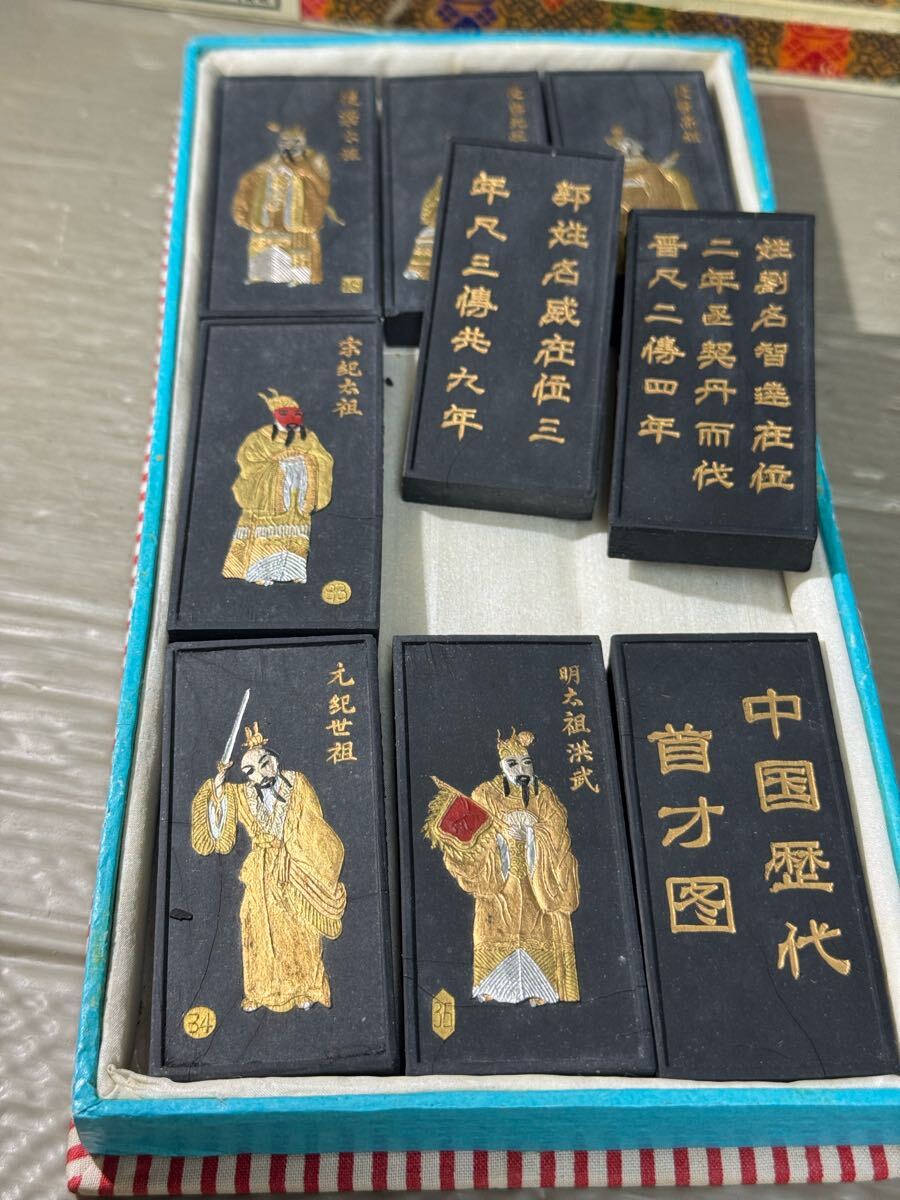 郭姓名威在位三
年尺三傳共六年
姓劉名智遠在位
二年丞契丹而伐
晋尺二傳四年
宗紀太祖
元紀世祖
34
明太祖洪武
36
中国歷代
首才图